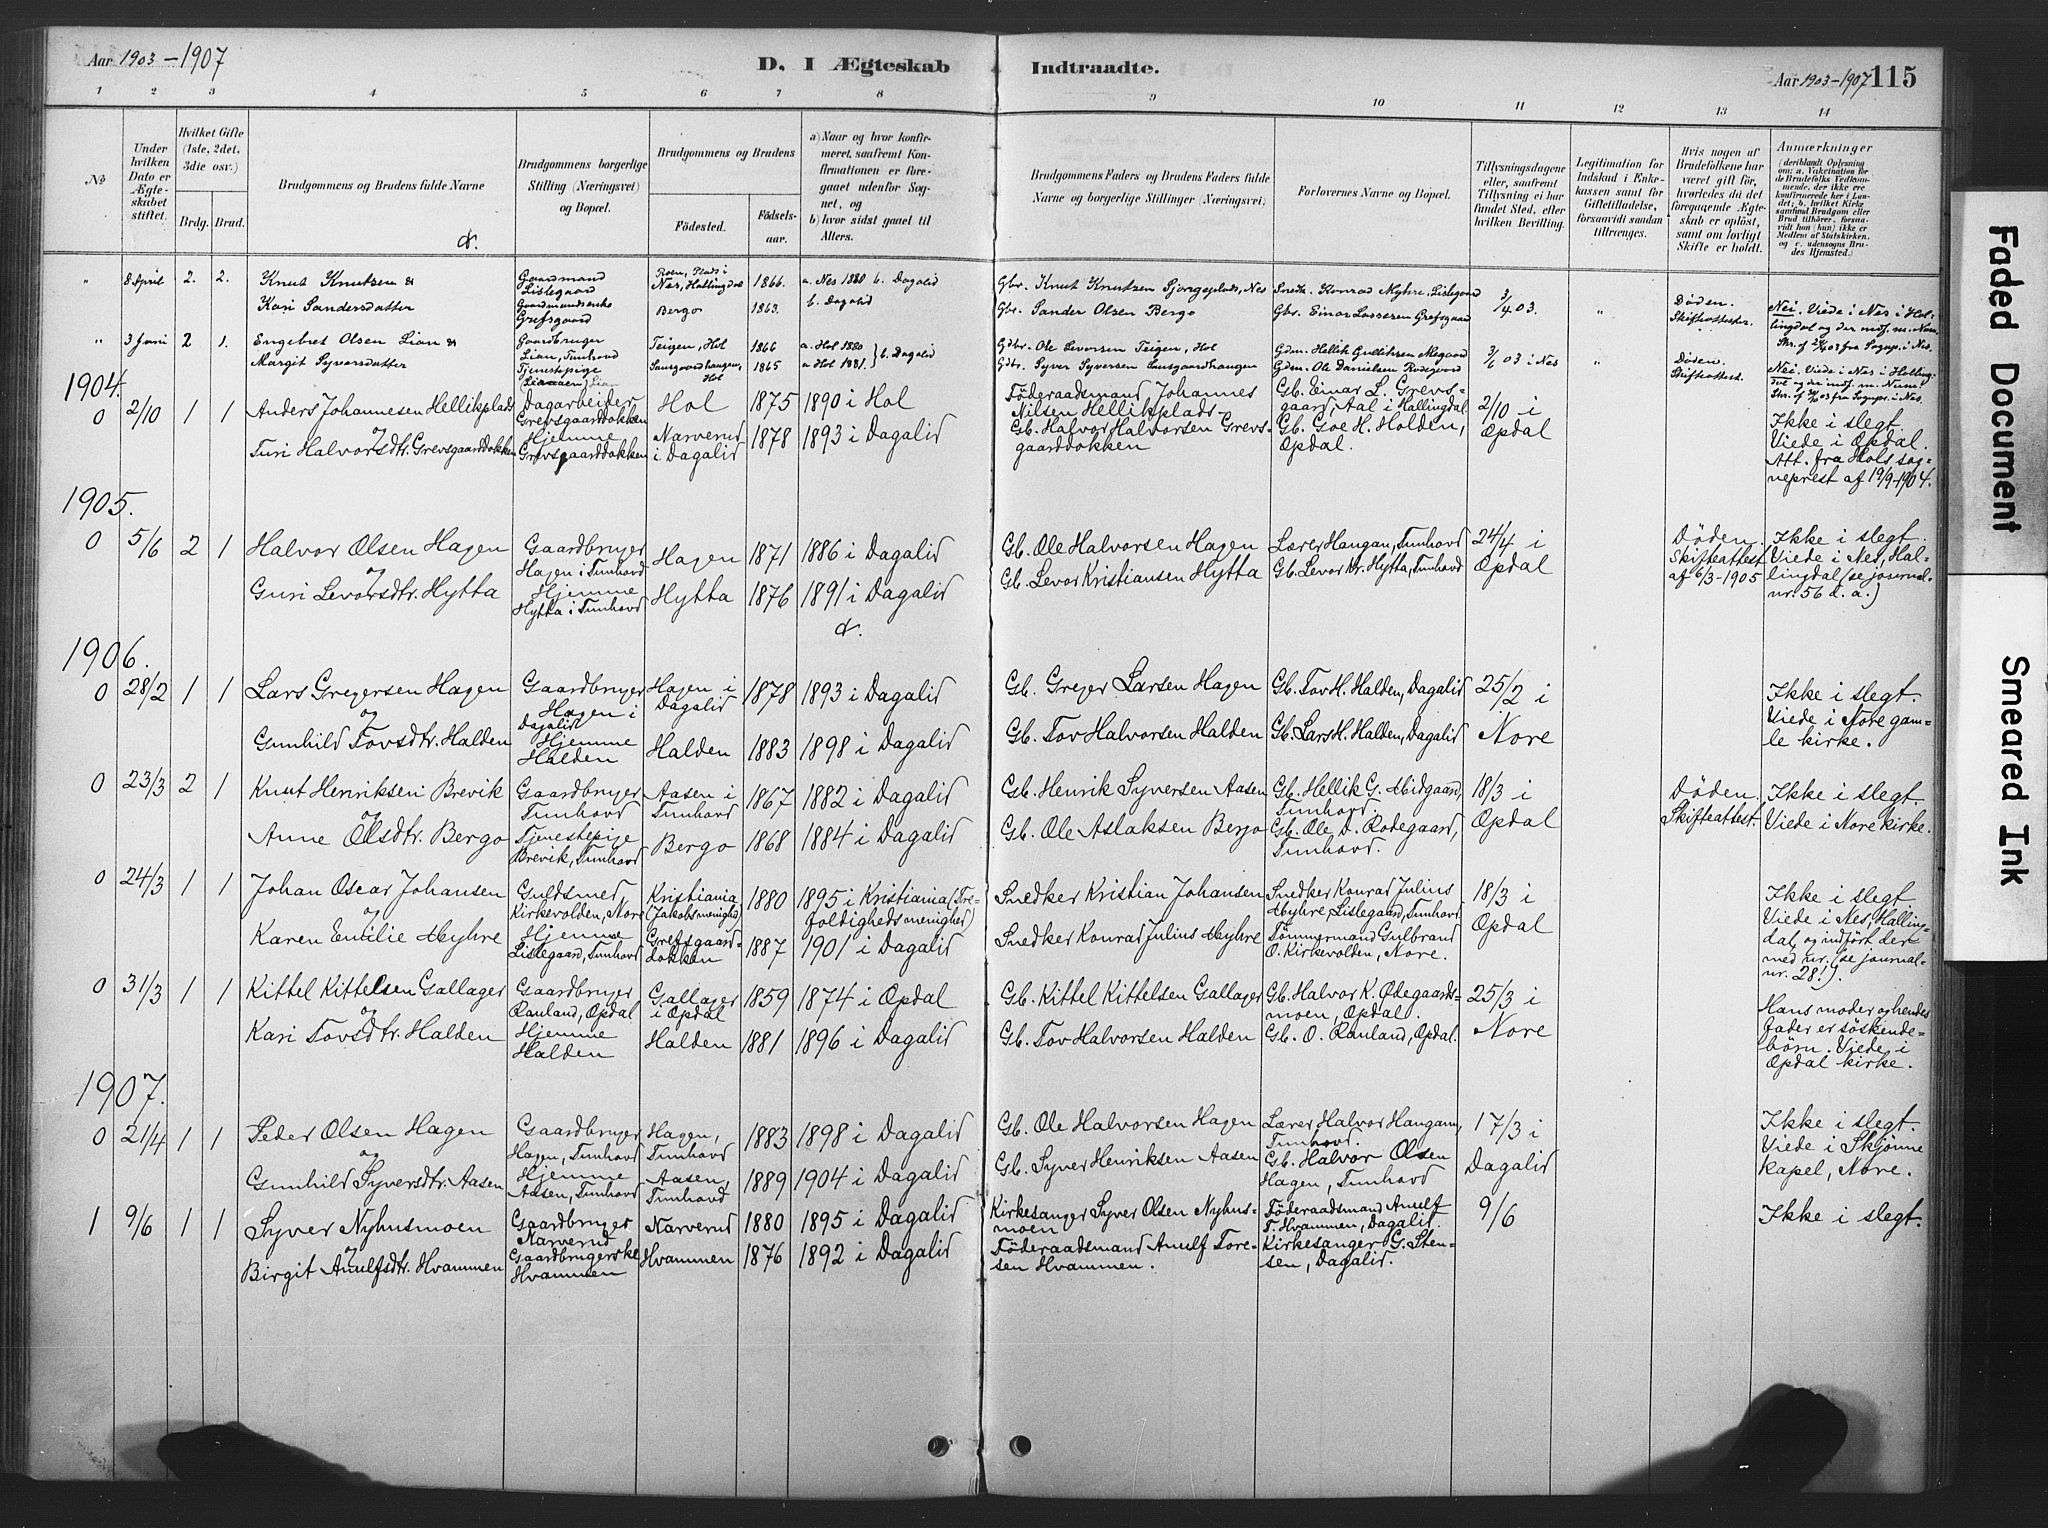 Aar 1903-1907
D. I Ægteskab Indtraadte.
Aar 1903-1907 115
1 2 3 4 5 6 7 8 9 10 11 12 13 14
No
Under hvilken Dato er Ægteskabet stiftet.
Hvilket Gifte (1ste, 2det, 3die osv.)
Brdg. Brud.
Brudgommens og Brudens fulde Navne
Brudgommens borgerlige Stilling (Næringsvei) og Bopæl.
Brudgommens og Brudens
Fødested. Fødselsaar.
a) Naar og hvor konfirmeret, saafremt Konfirmationen er foregaaet udenfor Sognet, og
b) hvor sidst gaaet til Alters.
Brudgommens Faders og Brudens Faders fulde Navne og borgerlige Stillinger (Næringsvei)
Forlovernes Navne og Bopæl.
Tillysningsdagene eller, saafremt Tillysning ei har fundet Sted, efter hvilken Bevilling.
Legitimation for Indskud i Enkekassen samt for Giftetilladelse, forsaavidt saadan tiltrænges.
Hvis nogen af Brudefolkene har været gift før, hvorledes da det foregaaende Ægteskab er opløst, samt om lovligt Skifte er holdt.
Anmærkninger
(deriblandt Oplysning om: a. Vakcination for de Brudefolks Vedkommende, der ikke ere konfirmerede her i Landet; b. hvilket Kirkesamfund Brudgom eller Brud tilhører, forsaavidt han (hun) ikke er Medlem af Statskirken, og c. udensogns Brudes Hjemsted.)
" 8 April 2. 2. Knut Knutsen & Gaardmand Lislegaard Roen, Plads i Nes, Hallingdal 1866. a. Nes 1880 b. Dagalid Gbr. Knut Knutsen Sjongeplads, Nes Snedk. Konrad Myhre, Lislegaard 3/4 03. " Døden. Skifteattest. Nei. Viede i Nes i Hallingdal
Kari Sandersdatter Gaardmandsenke Grefsgaard Bergo 1863. b. Dagalid Gbr. Sander Olsen Bergo Gbr. Einar Larsen Grefsgaard
" 3 Juni 2 1. Engebret Olsen Lian & Gaardbruger Lian, Tunhovd Teigen, Hol 1866 a. Hol 1880 b. Dagalid Gdbr. Ole Levorsen Teigen, Hol Gdm. Hellik Gulliksen Megaard 3/6 03 i Nes " Døden. Skifteattest. Nei. Viede i Nes i Hallingdal
Margit Syversdatter Tjenestepige Lian 1865 a Hol 1881. Gdbr. Syver Syversen Sansgaardhaugen Gdm. Ole Danielsen Rodegaard
1904.
0 2/10 1 1 Anders Johannesen Hellikplads Dagarbeider Grevsgaarddokken Hol 1875 1890 i Hol Föderaadsmand Johannes Nilsen Hellikplads Gb. Einar L. Grevsgaard, Aal i Hallingdal 2/10 i Opdal Ikke i slegt. Viede i Opdal.
og
Turi Halvorsdtr. Grevsgaarddokken Hjemme Grevsgaarddokken Narverud i Dagalid 1878 1893 i Dagalid Gb. Halvor Halvorsen Grevsgaarddokken Gb. Goe H. Holden, Opdal. Att. fra Hols sogneprest af 19/9-1904.
1905.
0 5/6 2 1 Halvor Olsen Hagen Gaardbruger Hagen i Tunhovd Hagen 1871 1886 i Dagalid Gb. Ole Halvorsen Hagen Lærer Haugan, Tunhovd 24/4 i Opdal Døden. Skifteattest af 6/3-1905 Ikke i slegt. Viede i Nes, Hallingdal (se journalnr. 56 d. a.)
og
Guri Levorsdtr. Hytta Hjemme Hytta i Tunhovd Hytta 1876 1891 i Dagalid Gb. Levor Kristiansen Hytta Gb. Levor Kr. Hytta, Tunhovd
1906.
0 28/2 1 1 Lars Gregersen Hagen Gaardbruger Hagen i Dagalid Hagen i Dagalid 1878 1893 i Dagalid Gb. Greger Larsen Hagen Gb. Tov H. Halden, Dagalid 25/2 i Nore Ikke i slegt. Viede i Nore gamle kirke.
og
Gunhild Tovsdtr. Halden Hjemme Halden Halden 1883 1898 i Dagalid Gb. Tov Halvorsen Halden Gb. Lars H. Halden, Dagalid
0 23/3 2 1 Knut Henriksen Brevik Gaardbruger Tunhovd Aasen i Tunhovd 1867 1882 i Dagalid Gb. Henrik Syversen Aasen Gb. Hellik G. Midgaard, Tunhovd. 18/3 i Opdal Døden. Skifteattest. Ikke i slegt. Viede i Nore kirke.
og
Anne Olsdtr. Bergo Tjenestepige Brevik, Tunhovd Bergo 1868 1884 i Dagalid Gb. Ole Aslaksen Bergo Gb. Ole D. Rodegaard, Tunhovd.
0 24/3 1 1 Johan Oscar Johansen Guldsmed Kirkevolden, Nore Kristiania (Jakobs menighed) 1880 1895 i Kristiania (Trefoldigheds menighed) Snedker Kristian Johansen Snedker Konrad Julius Myhre Lislegaard, Tunhovd. 18/3 i Opdal Ikke i slegt Viede i Nes, Hallingdal, og indført der med nr. (se journalnr. 281).
og
Karen Emilie Myhre Hjemme Lislegaard, Tunhovd Grefsgaarddokken 1887 1901 i Dagalid Snedker Konrad Julius Myhre Tømmermand Gulbrand O. Kirkevolden, Nore.
0 31/3 1 1 Kittel Kittelsen Gallager Gaardbruger Rauland, Opdal Gallager i Opdal 1859 1874 i Opdal Gb. Kittel Kittelsen Gallager Gb. Halvor K. Ødegaardsmoen, Opdal. 25/3 i Nore Hans moder og hendes fader er søskendebörn. Viede i Opdal kirke.
og
Kari Tovsdtr. Halden Hjemme Halden Halden 1881 1896 i Dagalid Gb. Tov Halvorsen Halden Gb. O. Rauland, Opdal.
1907.
0 21/4 1 1 Peder Olsen Hagen Gaardbruger Hagen, Tunhovd Hagen, Tunhovd 1883 1898 i Dagalid Gb. Ole Halvorsen Hagen Lærer Halvor Haugann, Tunhovd. 17/3 i Dagalid Ikke i slegt. Viede i Skjönne kapel, Nore.
og
Gunhild Syversdtr. Aasen Hjemme Aasen, Tunhovd Aasen, Tunhovd 1889 1904 i Dagalid Gb. Syver Henriksen Aasen Gb. Halvor Olsen Hagen, Tunhovd
1 9/6 1 1 Syver Nyhusmoen Gaardbruger Narverud Narverud 1880 1895 i Dagalid Kirkesanger Syver Olsen Nyhusmoen Föderaadsmand Anulf T. Hvammen, Dagalid. 9/6 Ikke i slegt.
og
Birgit Anulfsdtr. Hvammen Gaardbrugerske Hvammen Hvammen 1876 1892 i Dagalid Föderaadsmand Anulf Toresen Hvammen. Kirkesanger G. Stensen, Dagalid.
Faded Document
Smeared Ink